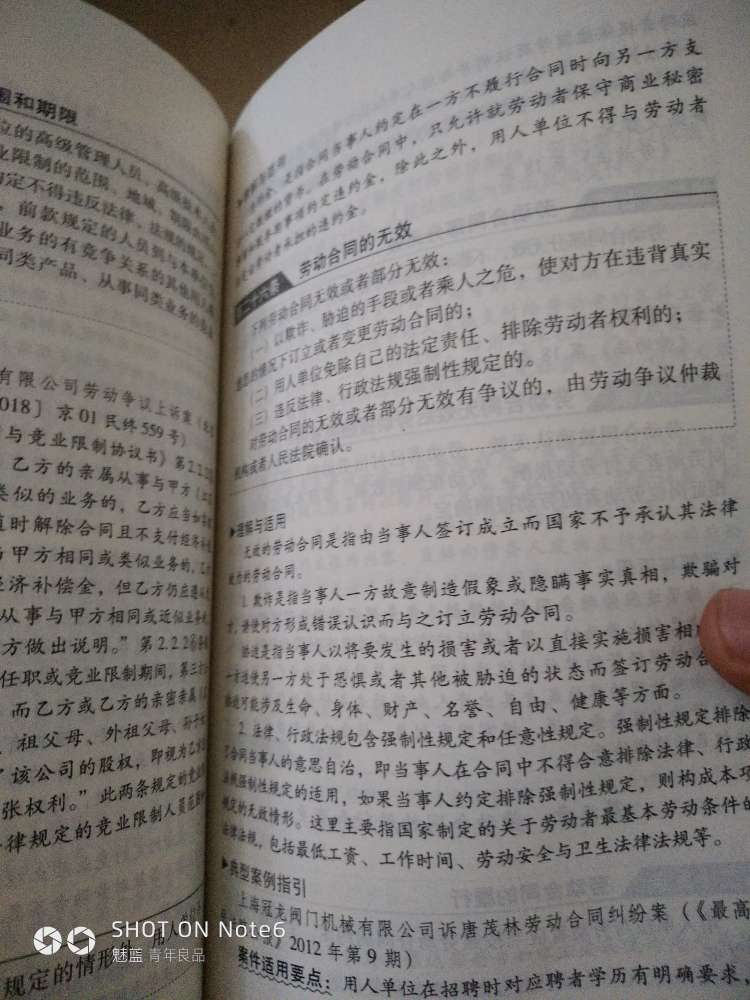 围和期限
位的高级管理人员、高级技术人
业限制的范围、地域、期限由用
约定不得违反法律、法规的规定。
前款规定的人员到与本单位
业务的有竞争关系的其他用人
同类产品、从事同类业务的竞业
有限公司劳动争议上诉案（北京
018〕京01民终559号）
与竞业限制协议书》第2.2.2
乙方的亲属从事与甲方（
类似的业务的，乙方应当如
直时解除合同且不支付经济补
与甲方相同或类似业务的，乙
经济补偿金，但乙方仍应遵
从事与甲方相同或近似业务
方做出说明。”第2.2.2
任职或竞业限制期间，第三
而乙方或乙方的亲密亲属（
祖父母、外祖父母、孙子女
了该公司的股权，即视为乙方
张权利。”此两条规定的竞业
律规定的竞业限制人员范围
规定的情形外，用人单位
▶理解与适用
违约金，是指合同当事人约定在一方不履行合同时向另一方支
付一定数额的货币。在劳动合同中，只允许就劳动者保守商业秘密
和服务期事项约定违约金，除此之外，用人单位不得与劳动者
约定由劳动者承担的违约金。
第二十六条 劳动合同的无效
下列劳动合同无效或者部分无效：
（一）以欺诈、胁迫的手段或者乘人之危，使对方在违背真实
意思的情况下订立或者变更劳动合同的；
（二）用人单位免除自己的法定责任、排除劳动者权利的；
（三）违反法律、行政法规强制性规定的。
对劳动合同的无效或者部分无效有争议的，由劳动争议仲裁
机构或者人民法院确认。
▶理解与适用
无效的劳动合同是指由当事人签订成立而国家不予承认其法律
效力的劳动合同。
1. 欺诈是指当事人一方故意制造假象或隐瞒事实真相，欺骗对
方，诱使对方形成错误认识而与之订立劳动合同。
胁迫是指当事人以将要发生的损害或者以直接实施损害相
一方迫使另一方处于恐惧或者其他被胁迫的状态而签订劳动合
胁迫可能涉及生命、身体、财产、名誉、自由、健康等方面。
2. 法律、行政法规包含强制性规定和任意性规定。强制性规定排除
了合同当事人的意思自治，即当事人在合同中不得合意排除法律、行政
法规强制性规定的适用，如果当事人约定排除强制性规定，则构成本项
规定的无效情形。这里主要指国家制定的关于劳动者最基本劳动条件的
法律法规，包括最低工资、工作时间、劳动安全与卫生法律法规等。
▶典型案例指引
上海冠龙阀门机械有限公司诉唐茂林劳动合同纠纷案（《最高
2012年第9期）
案件适用要点：用人单位在招聘时对应聘者学历有明确要求，
SHOT ON Note6
魅蓝 青年良品